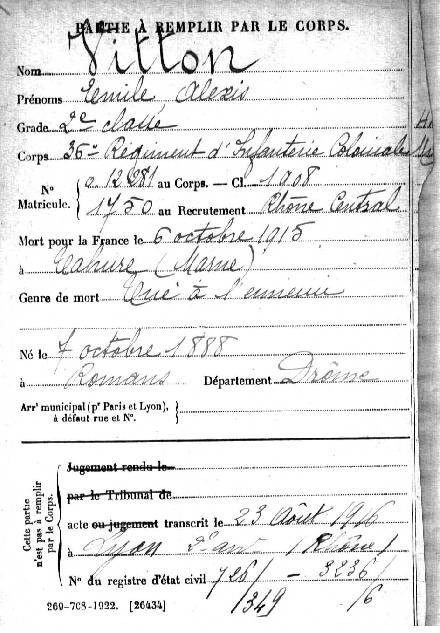 PARTIE À REMPLIR PAR LE CORPS.
Nom Vitton
Prénoms Emile Alexis
Grade 2e classe
Corps 36e Régiment d'Infanterie Coloniale
N° Matricule. 12681 au Corps. — Cl. 1908
1750 au Recrutement Rhône Central
Mort pour la France le 6 octobre 1915
à Tahure (Marne)
Genre de mort Tué à l'ennemi
Né le 7 octobre 1888
à Romans Département Drôme
Arrt municipal (pr Paris et Lyon), à défaut rue et N°.
Cette partie n'est pas à remplir par le Corps.
Jugement rendu le
par le Tribunal de
acte ou jugement transcrit le 23 Août 1916
à Lyon 2e arr (Rhône)
N° du registre d'état civil 726/ - 3236/
/349 /6
269-708-1922. [26434]